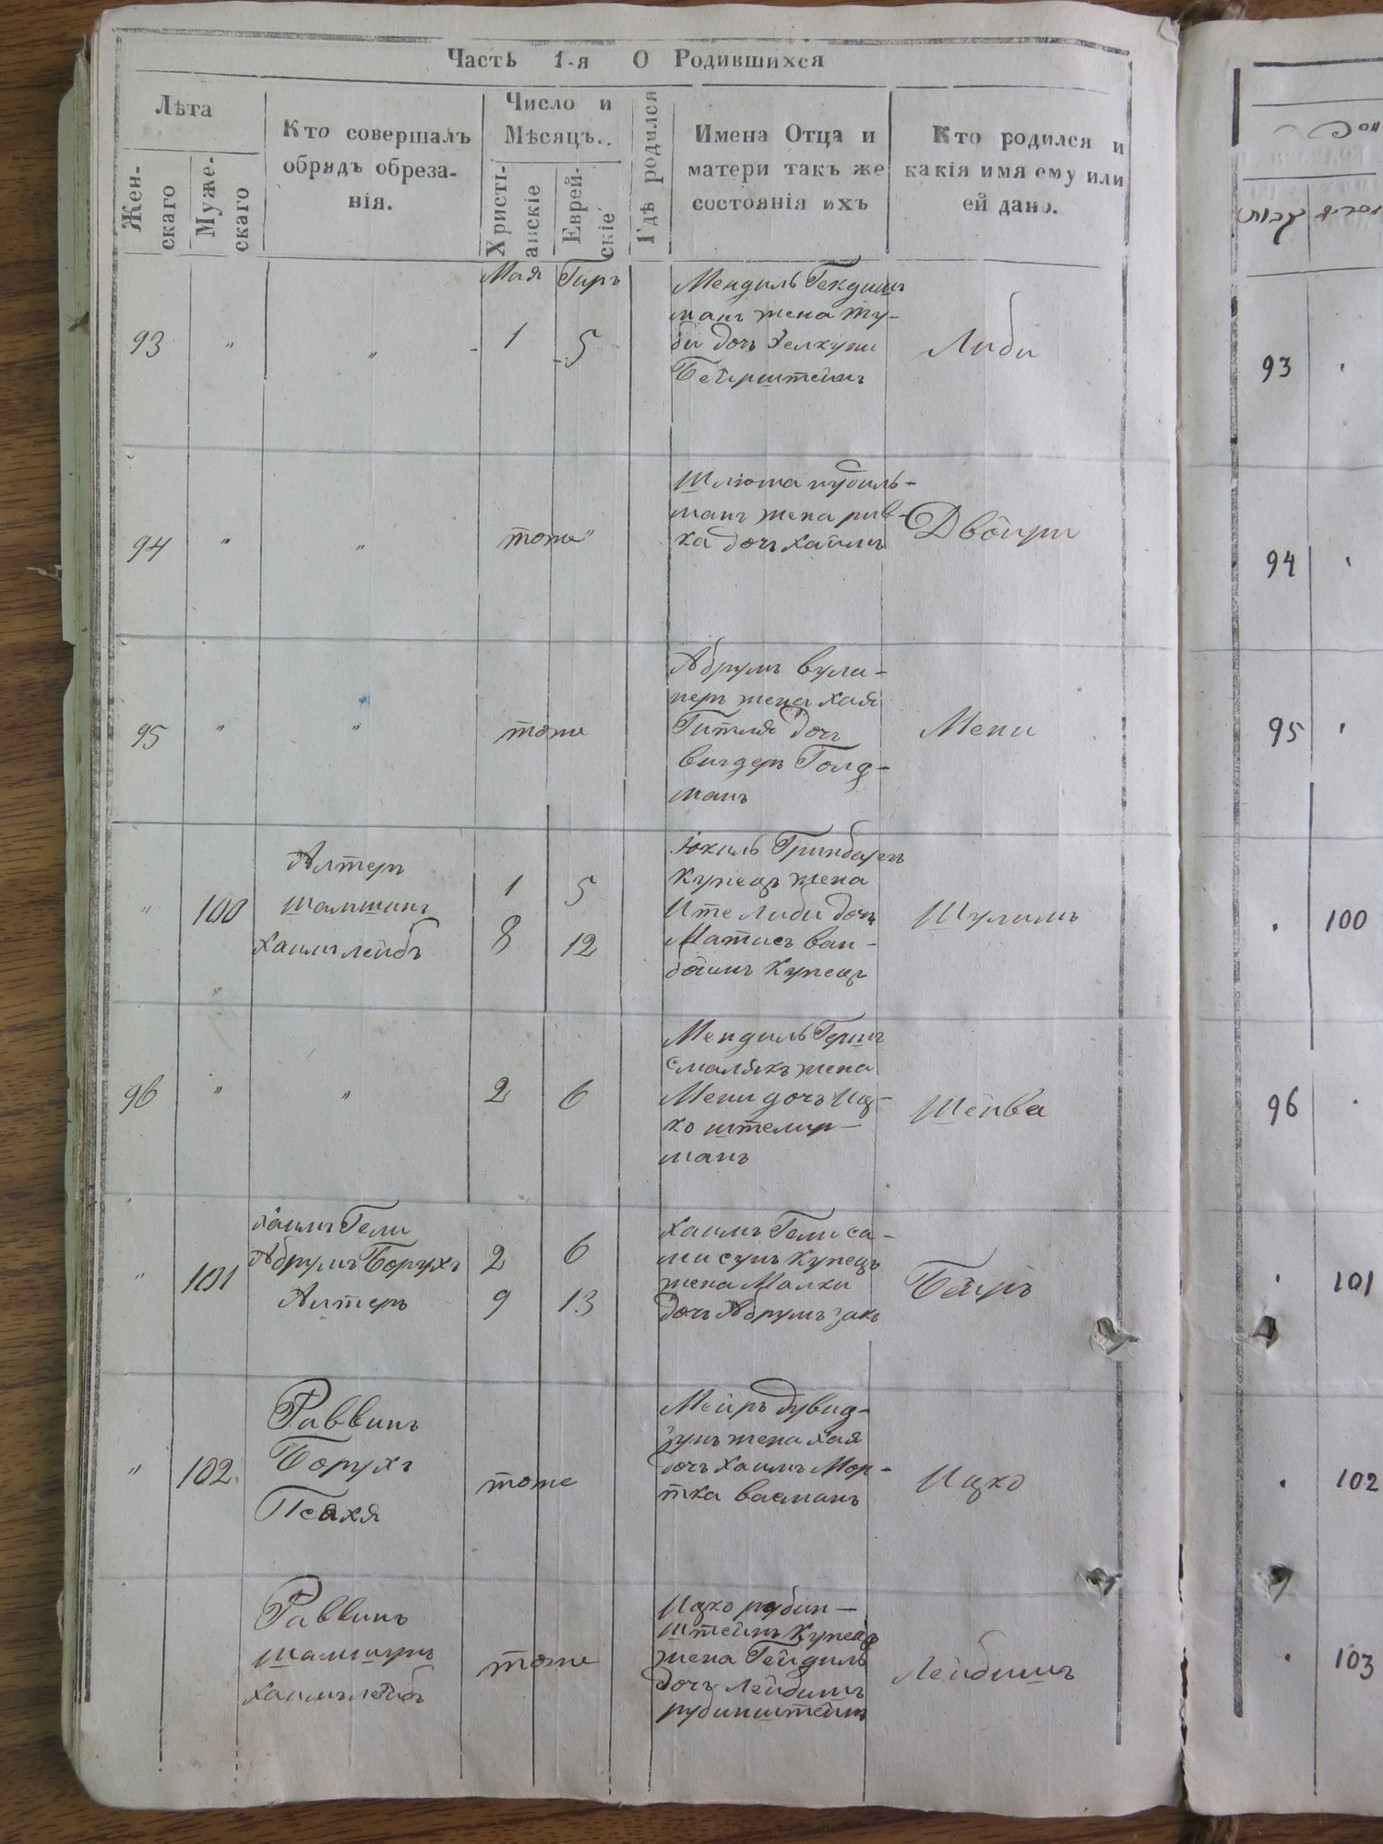 Часть 1-я О Родившихся
Лѣта
Жен-
скаго
Муже-
скаго
Кто совершалъ
обрядъ обреза-
нія.
Число и
Мѣсяцъ..
Христі-
анскіе
Еврей-
скіе
Гдѣ родился
Имена Отца и
матери такъ же
состоянія ихъ
Кто родился и
какія имя ему или
ей дано.
Мая
93 " " 1 5
Мендиль
манъ жена Ту-
би дочь
Либи
94 " " тоже"
Шлюма
манъ жена рив-
ка дочь хаимъ
Двойри
95 " " тоже
Абрумъ вула-
неръ жена хая
Гитля дочъ
вигдеръ Голд-
манъ
Мени
" 100
Алтеръ
шамшинъ
хаимъ лейбъ
1 5
8 12
Юкиль Гринбаумъ
купецъ жена
Ите Либи дочъ
Матисъ ван-
боимъ купецъ
Шулимъ
96 " " 2 6
Мендиль Гершъ
смалякъ жена
Мени дочъ Иц-
ко
манъ
Шейва
" 101
хаимъ Гели
Абрумъ Борухъ
Алтеръ
2 6
9 13
хаимъ Гели са-
мисунъ купецъ
жена Малки
дочъ Абрумъ закъ
Беиръ
" 102
Раввинъ
Борухъ
Псахя
тоже
Меиръ дувид-
зунъ жена хая
дочъ хаимъ Мор-
тка васманъ
Ицко
Раввинъ
шамшунъ
хаимъ лейбъ
тоже
Ицко рубин-
штейнъ купецъ
жена Гендиль
дочъ Лейбишъ
рубинштейнъ
Лейбишъ
93
94
95
100
96
101
102
103